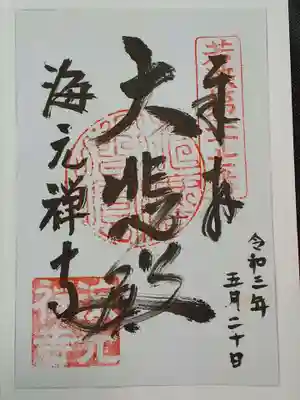 奉拝
大悲殿
海元禅寺
令和三年
五月二十日